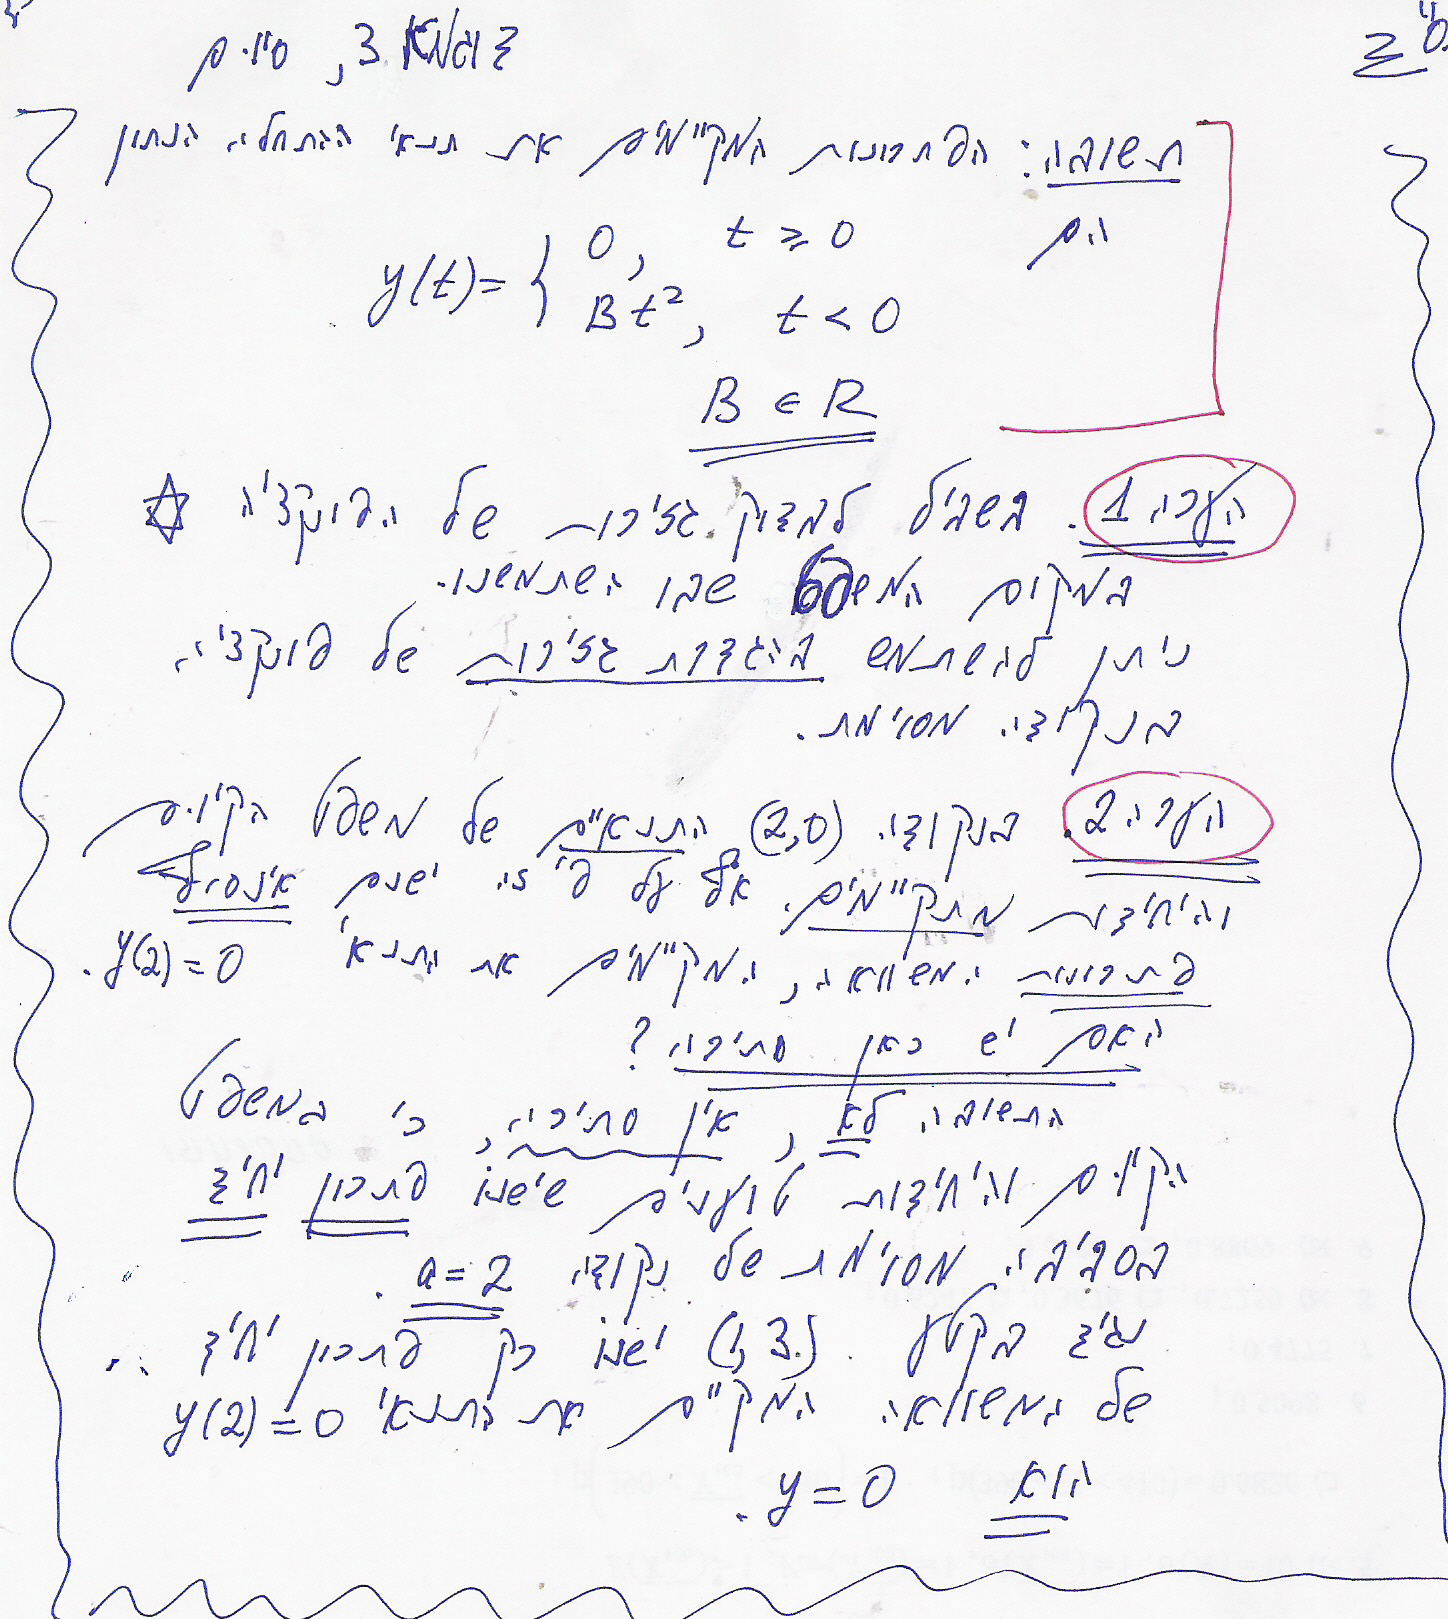 דוגמא 3, סיום
תשובה: הפתרונות המקיימים את תנאי ההתחלה הנתון
הם
y(t) = { 0, t ≥ 0
Bt², t < 0
B ∈ R
הערה 1. בשביל לבדוק גזירות של הפונקציה ✡
במקום המשפט שבו השתמשנו.
ניתן להשתמש בהגדרת גזירות של פונקציה
בנקודה מסוימת.
הערה 2. בנקודה (2,0) התנאים של משפט הקיום
והיחידות מתקיימים. אף על פי זה ישנם אינסוף
פתרונות המשוואה, המקיימים את התנאי y(2)=0.
האם יש כאן סתירה?
התשובה לא, אין סתירה, כי המשפט
הקיום והיחידות טוענים שישנו פתרון יחיד
בסביבה מסוימת של נקודה a=2.
נגיד בקטע (1,3) ישנו רק פתרון יחיד
של המשוואה המקיים את התנאי y(2)=0
הוא y=0.